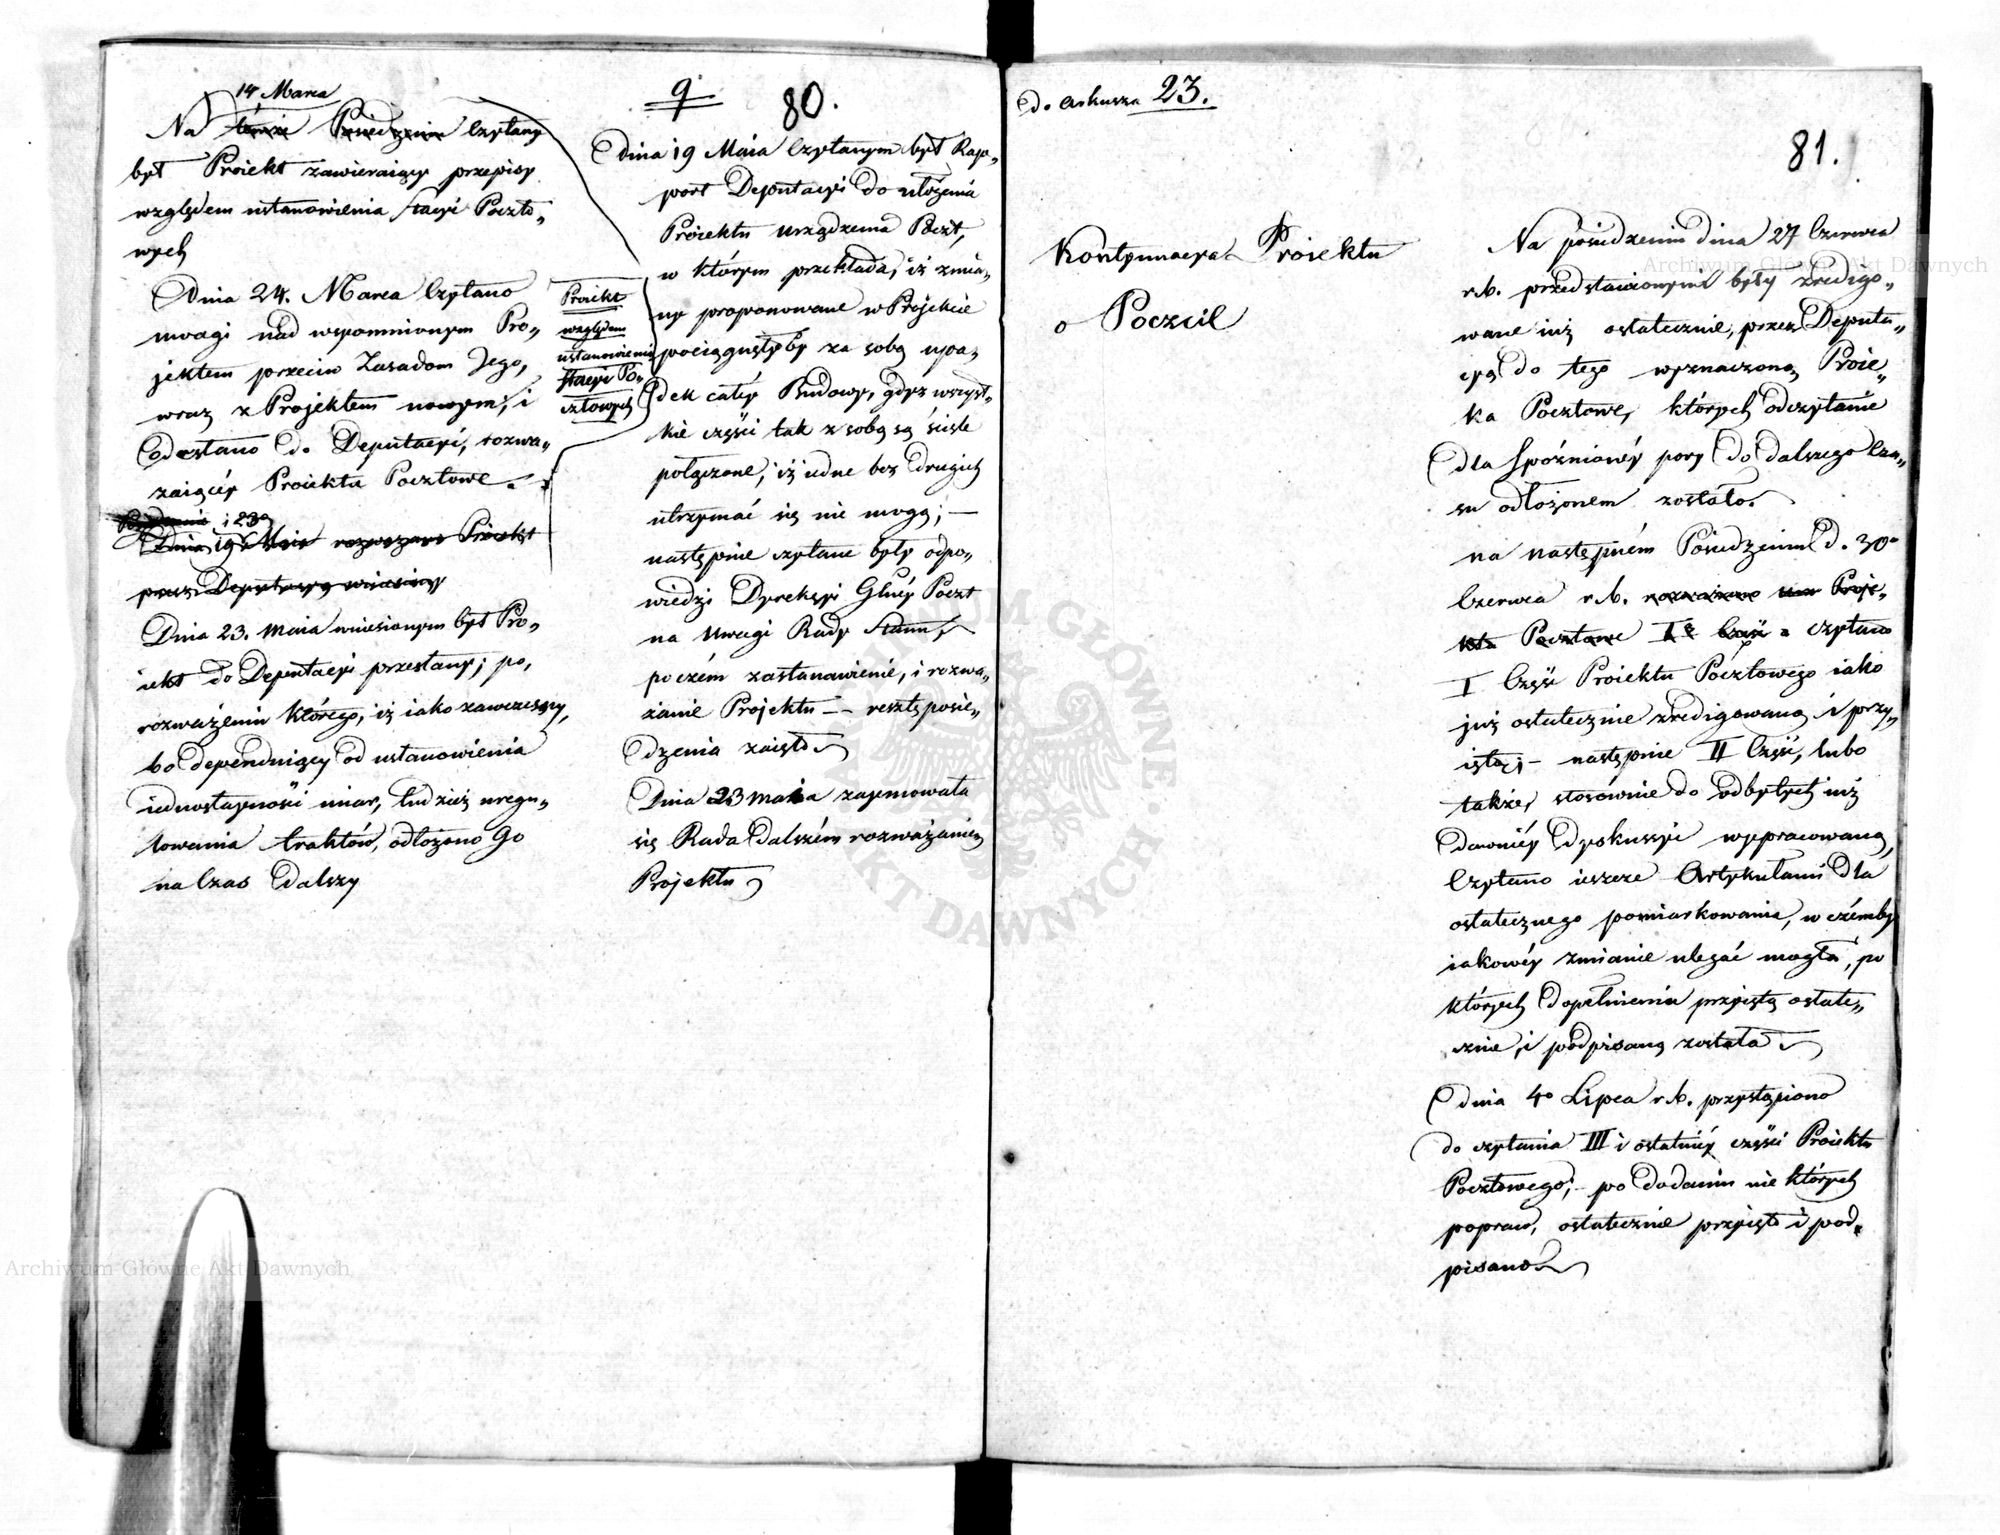 14 Marca
Na témże Posiedzeniu Czytany
był Proiekt zawieraiący przepisy
względem ustanowienia stacyi Poczto„
wych
Dnia 24. Marca Czytano
uwagi nad wspomnionym Pro„
jektem przeciw Zasadom Jego,
wraz z Projektem nowym, i
Odesłano do Deputacyi, rozwa„
zaiącéy Proiekta Pocztowe.
i 23º
Dnia 19 Maia rozważano Proiekt
przez Deputacyą wniesiony
Dnia 23. Maia wniesionym był Pro„
iekt do Deputacyi przesłany; po,
rozważeniu którego, iż iako zawczesny,
bo dependuiący od ustanowienia
iednostayności miar, tudzież uregu„
lowania traktów, odłożono go
na Czas dalszy
Proiekt
względem
ustanowienia
stacyi Po„
cztowych
9
80.
Dnia 19 Maia Czytanym był Rap„
port Deputacyi do ułożenia
Proiektu urządzenia Poczt,
w którym przekłada, iż zmia„
ny proponowane w Projekcie
pociągnęłyby za sobą upa„
dek całéy Budowy, gdyż wszyst„
kie części tak z sobą są ściśle
połączone, iż iedne bez drugich
utrzymać się nie mogą; —
następnie czytane były odpo„
wiedzi Dyrekcyi Główéy Poczt
na Uwagi Rady Stanu,
poczém zastanowienie, i rozwa„
żanie Projektu — resztę posie„
dzenia zaięło.
Dnia 23 maia zajmowała
się Rada dalszém rozważaniem
Projektu
do Arkusza 23.
81.
Kontynuacya Proiektu
o Poczcie
Na posiedzeniu dnia 27 Czerwca
r.b. przedstawionymi były zredigo„
wane iuż ostatecznie, przez Deputa„
cyą do tego wyznaczoną, Proie„
kta Pocztowe, których odczytanie
dla spóźnionéy pory do dalszego Cza„
su odłożonem zostało.
na następném Posiedzeniu d. 30º
Czerwca r.b. rozważano Proje„
kta Pocztowe Iª Część czytano
I Część Proiektu Pocztowego iako
już ostatecznie zredigowaną i przy„
iętą; — następnie II Część, lubo
także, stosownie do odbytych iuż
dawniéy Dyskussyi wypracowaną,
Czytano ieszcze Artykułami dla
ostatecznego pomiarkowania, w czémby
iakowéy zmianie ulegać mogła, po
których dopełnieniu przyiętą ostate„
cznie, i podpisaną została
dnia 4º Lipca r.b. przystąpiono
do czytania III i ostatniéy części Proiektu
Pocztowego; — po dodaniu nie których
popraw, ostatecznie przyięto i pod„
pisano.
Archiwum Główne Akt Dawnych
Archiwum Główne Akt Dawnych
ARCHIWUM GŁÓWNE AKT DAWNYCH